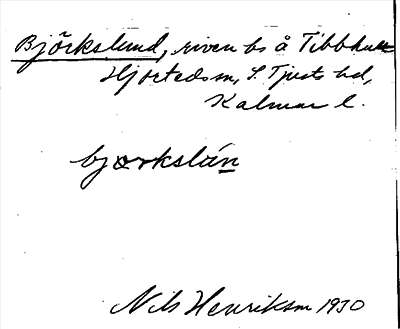 Björkslund, riven bs å Tibbhult
Hjorteds sn, S. Tjusts hd,
Kalmar l.
bjorkslán
Nils Henriksson 1930